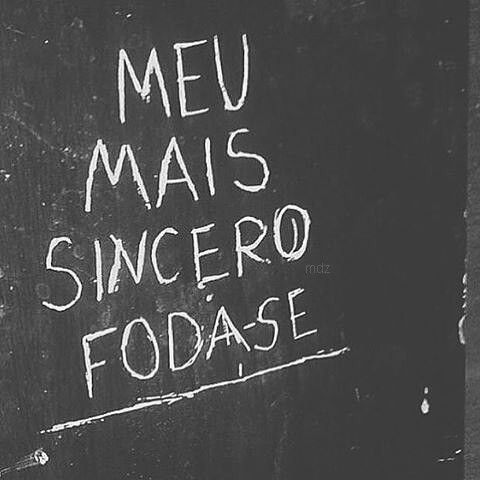 MEU
MAIS
SINCERO
mdz
FODA-SE